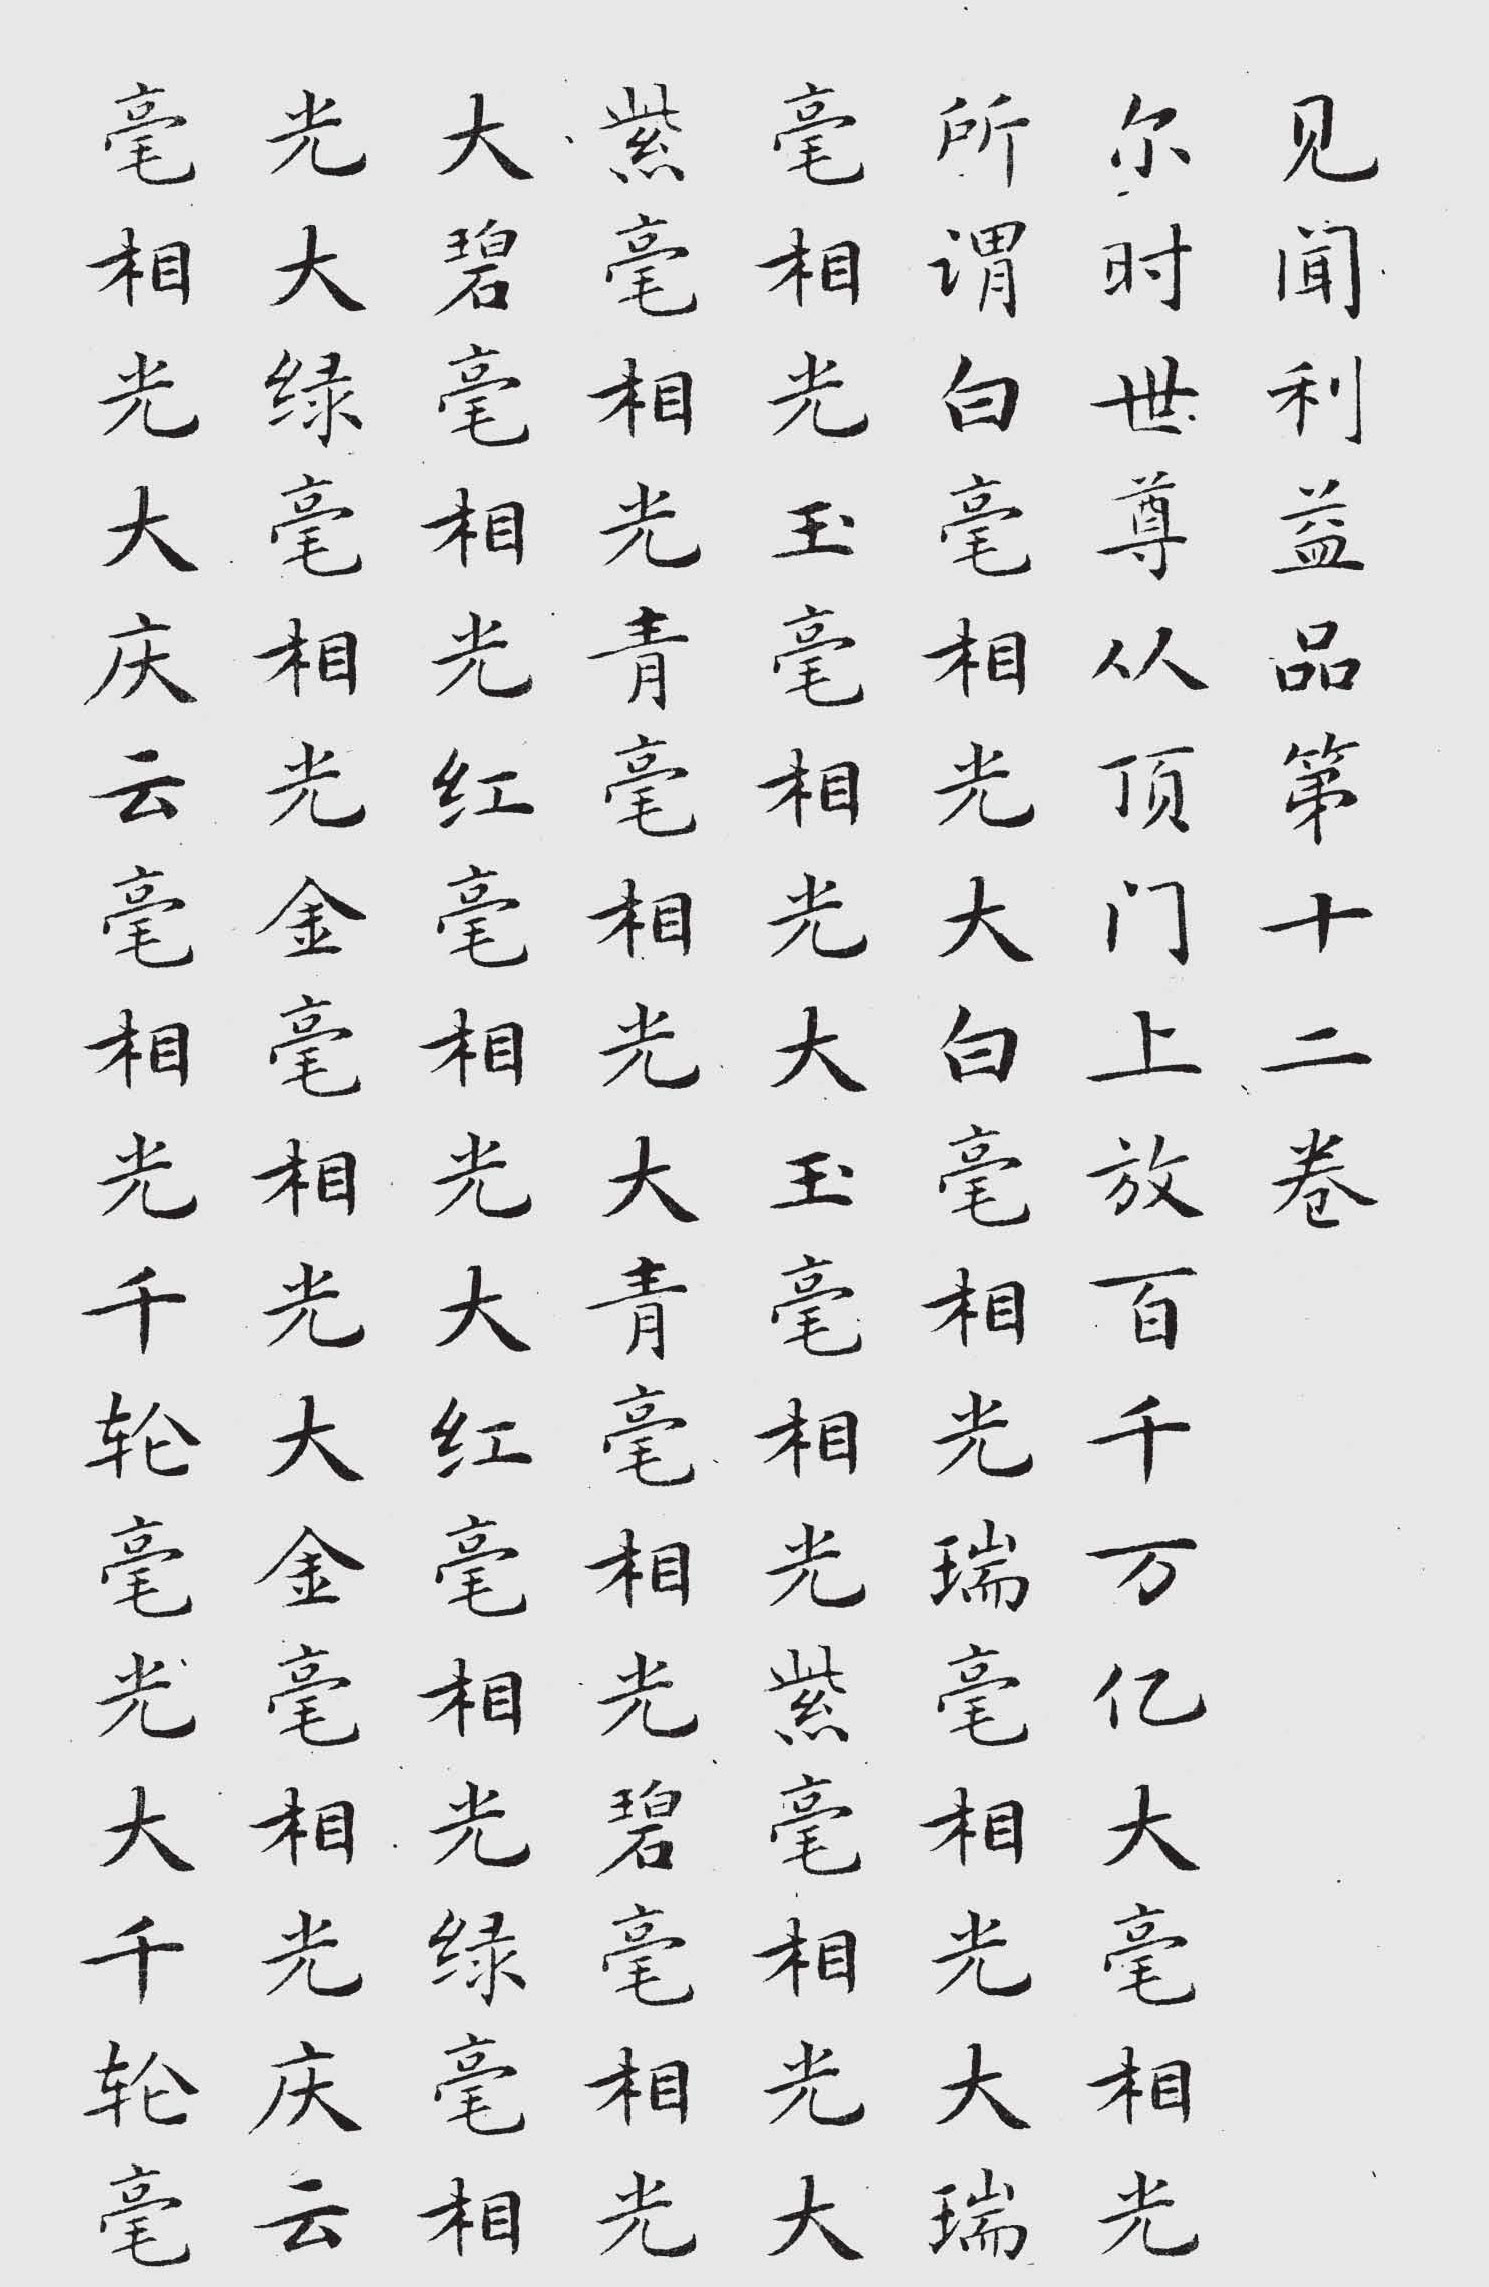 见闻利益品第十二卷
尔时世尊从顶门上放百千万亿大毫相光
所谓白毫相光大白毫相光瑞毫相光大瑞
毫相光玉毫相光大玉毫相光紫毫相光大
紫毫相光青毫相光大青毫相光碧毫相光
大碧毫相光红毫相光大红毫相光绿毫相
光大绿毫相光金毫相光大金毫相光庆云
毫相光大庆云毫相光千轮毫光大千轮毫